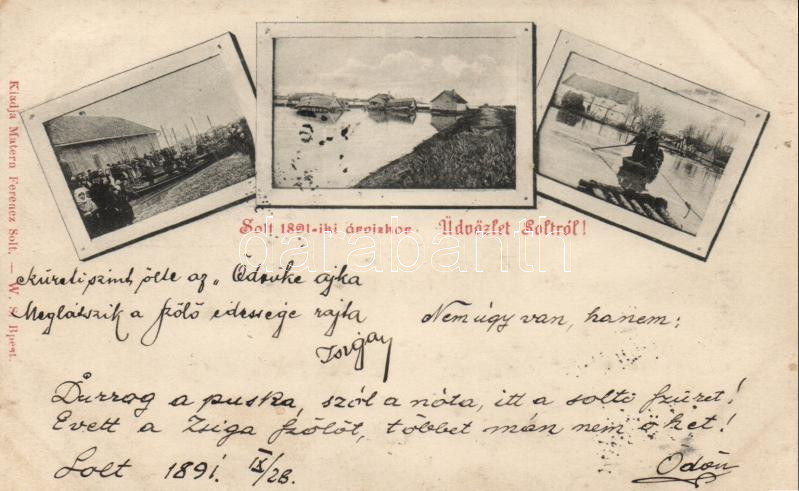 Kiadja Matern Ferencz Solt. — W. S. Bpest.
Solt 1891-iki árvizkor. Üdvözlet Soltról!
darabanth
ölte az „Ödönke ajka
Meglátszik a szőlő édessége rajta
Nem úgy van, hanem:
Durrog a puska, szól a nóta, itt a solti szüret!
Evett a Zsiga szőlőt, többet mán nem ö
Solt 1891. IX/28.
Ödön